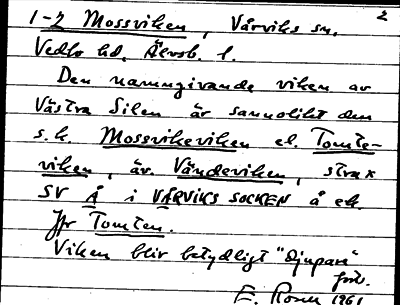 1-2 Mossviken, Vårviks sn, 2
Vedbo hd, Älvsb. l.
Den namngivande viken av
Västra Silen är sannolikt den
s.k. Mossvikeviken el. Tomte-
viken, äv. Vändeviken, strax
SV Å i VÅRVIKS SOCKEN å ek.
Jfr Tomten.
Viken blir betydligt "djupare"
förb.
E. Rosen 1961